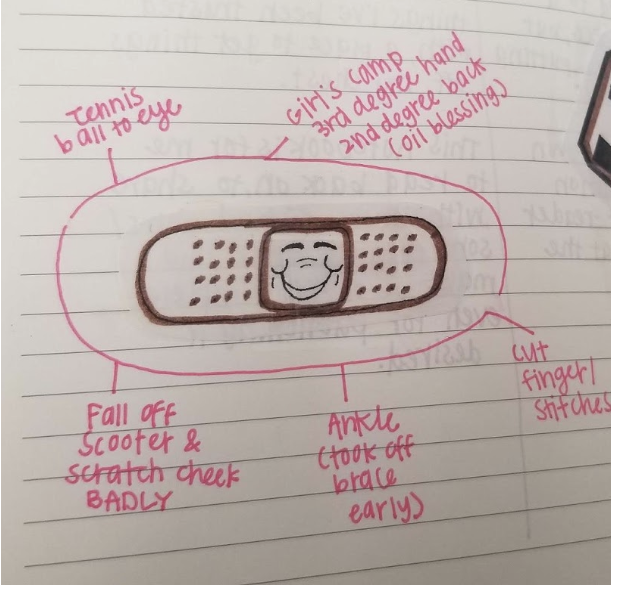 Tennis
ball to eye
Girl's camp
3rd degree hand
2nd degree back
(oil blessing)
cut
finger/
stitches
Fall off
scooter &
scratch cheek
BADLY
Ankle
(took off
brace
early)
desired.